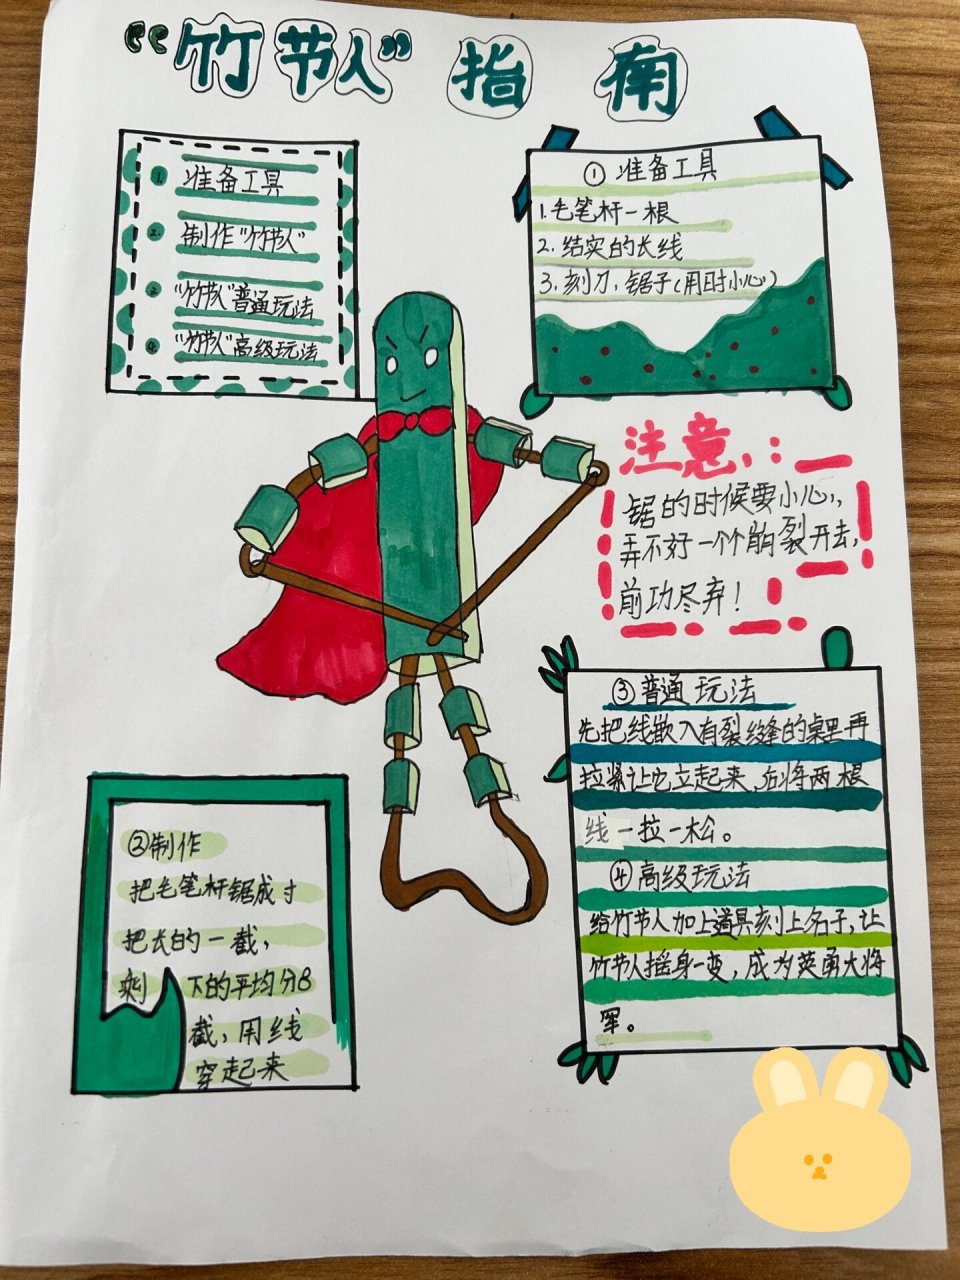 “竹节人”指南
1. 准备工具
2. 制作“竹节人”
3. “竹节人”普通玩法
4. “竹节人”高级玩法
①准备工具
1.毛笔杆一根
2.结实的长线
3.刻刀，锯子(用时小心)
注意：
锯的时候要小心，
弄不好一个个崩裂开去，
前功尽弃！
②制作
把毛笔杆锯成寸
把长的一截，
剩下的平均分8
截，用线
穿起来
③普通玩法
先把线嵌入有裂缝的桌里再
拉紧让它立起来，后将两根
线一拉一松。
④高级玩法
给竹节人加上道具刻上名子，让
竹节人摇身一变，成为英勇大将
军。